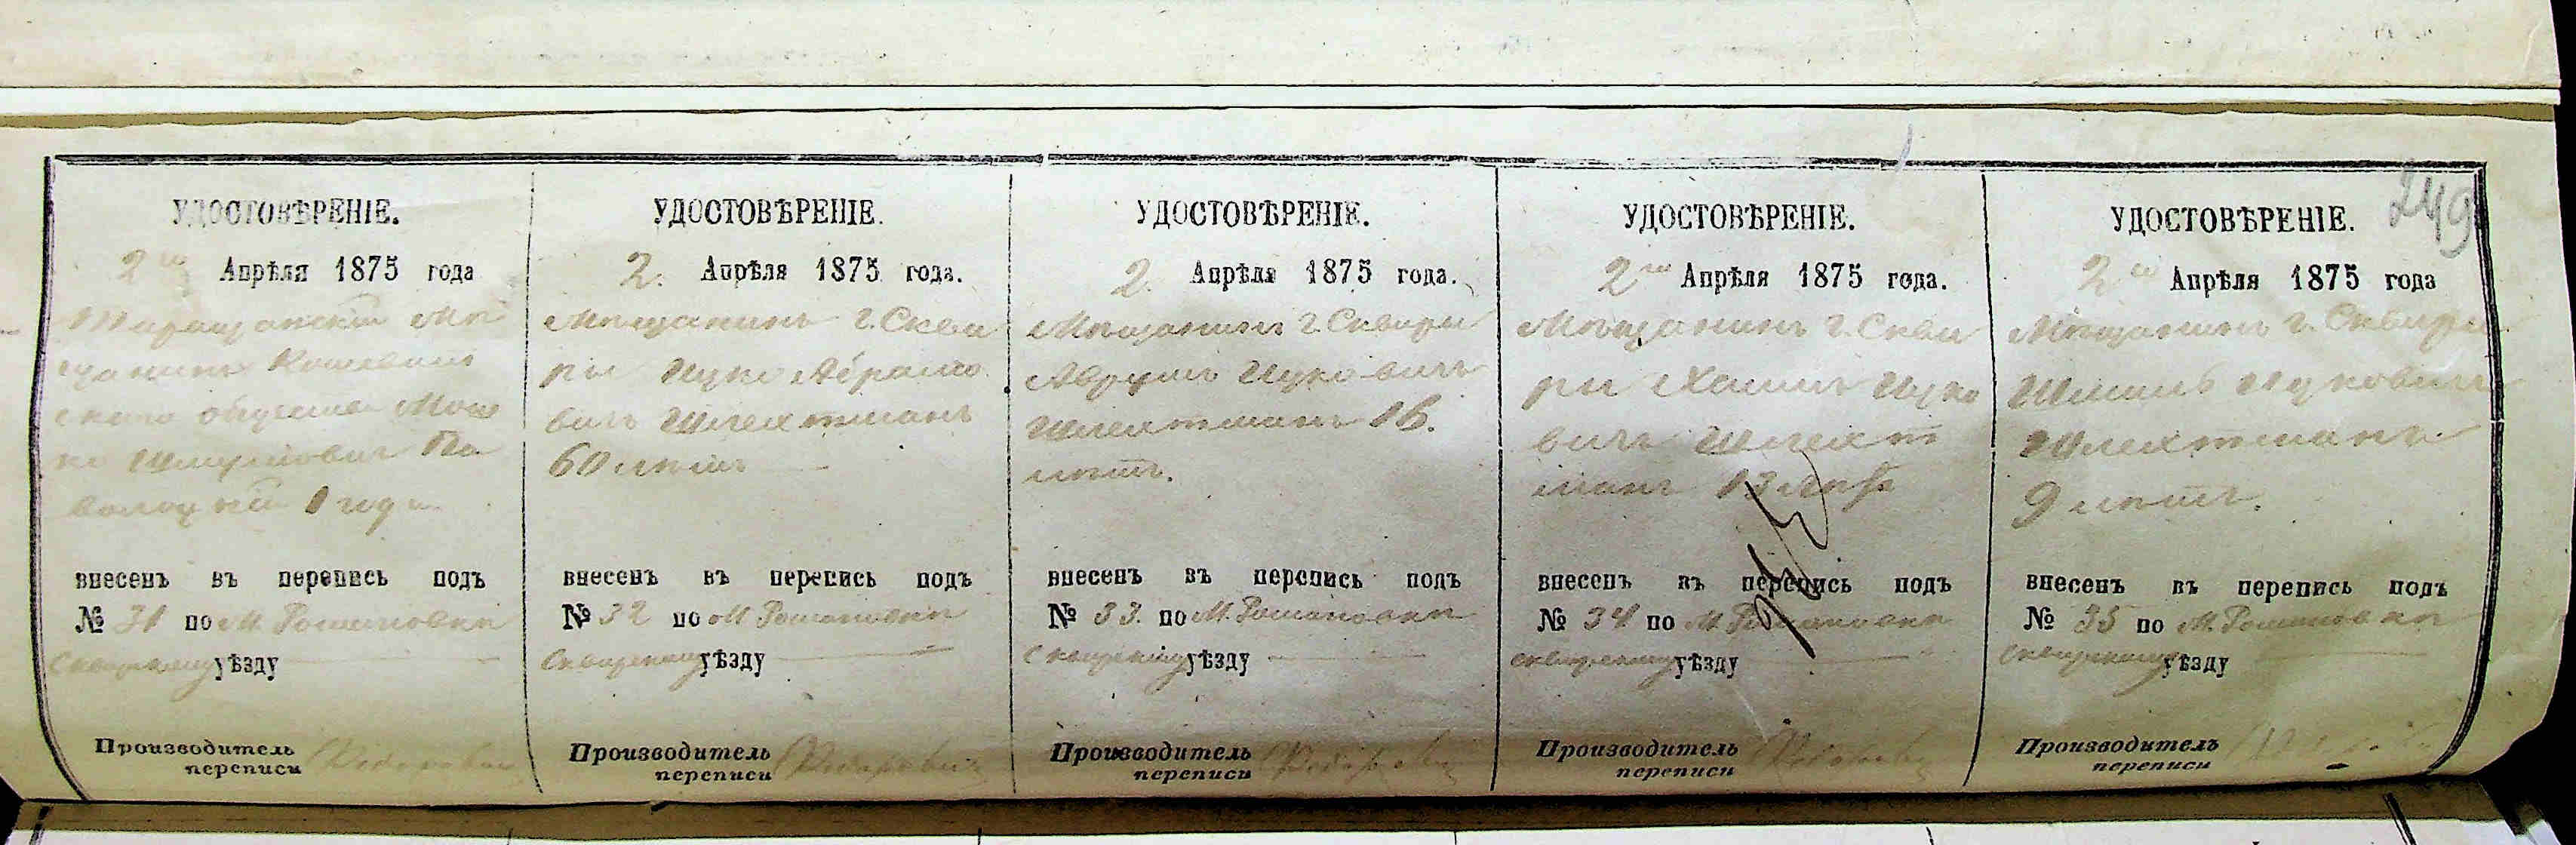 249
УДОСТОВѢРЕНІЕ.
2го Апрѣля 1875 года
Таращанскій Мѣ
щанинъ Кошеват
скаго общества Мош
ко Шмулiовичъ Па
волоцкій 1 года
внесенъ въ перепись подъ
№ 31 по М. Романовкѣ
Сквирскому уѣзду
Производитель
переписи
УДОСТОВѢРЕНІЕ.
2. Апрѣля 1875 года.
Мѣщанинъ г. Скви
ры Ицко Абрамо
вичъ Шлехтманъ
60 лѣтъ
внесенъ въ перепись подъ
№ 32 по М. Романовкѣ
Сквирскому уѣзду
Производитель
переписи
УДОСТОВѢРЕНІЕ.
2. Апрѣля 1875 года.
Мѣщанинъ г. Сквиры
Аврумъ Ицковичъ
Шлехтманъ 16.
лѣтъ.
внесенъ въ перепись подъ
№ 33. по М. Романовкѣ
Сквирскому уѣзду
Производитель
переписи
УДОСТОВѢРЕНІЕ.
2го Апрѣля 1875 года.
Мѣщанинъ г. Скви
ры Хаимъ Ицко
вичъ Шлехт
манъ 13 лѣтъ
внесенъ въ перепись подъ
№ 34 по М. Романовкѣ
Сквирскому уѣзду
Производитель
переписи
УДОСТОВѢРЕНІЕ.
2го Апрѣля 1875 года
Мѣщанинъ г. Сквиры
Ицковичъ
Шлехтманъ
9 лѣтъ.
внесенъ въ перепись подъ
№ 35 по М. Романовкѣ
Сквирскому уѣзду
Производитель
переписи